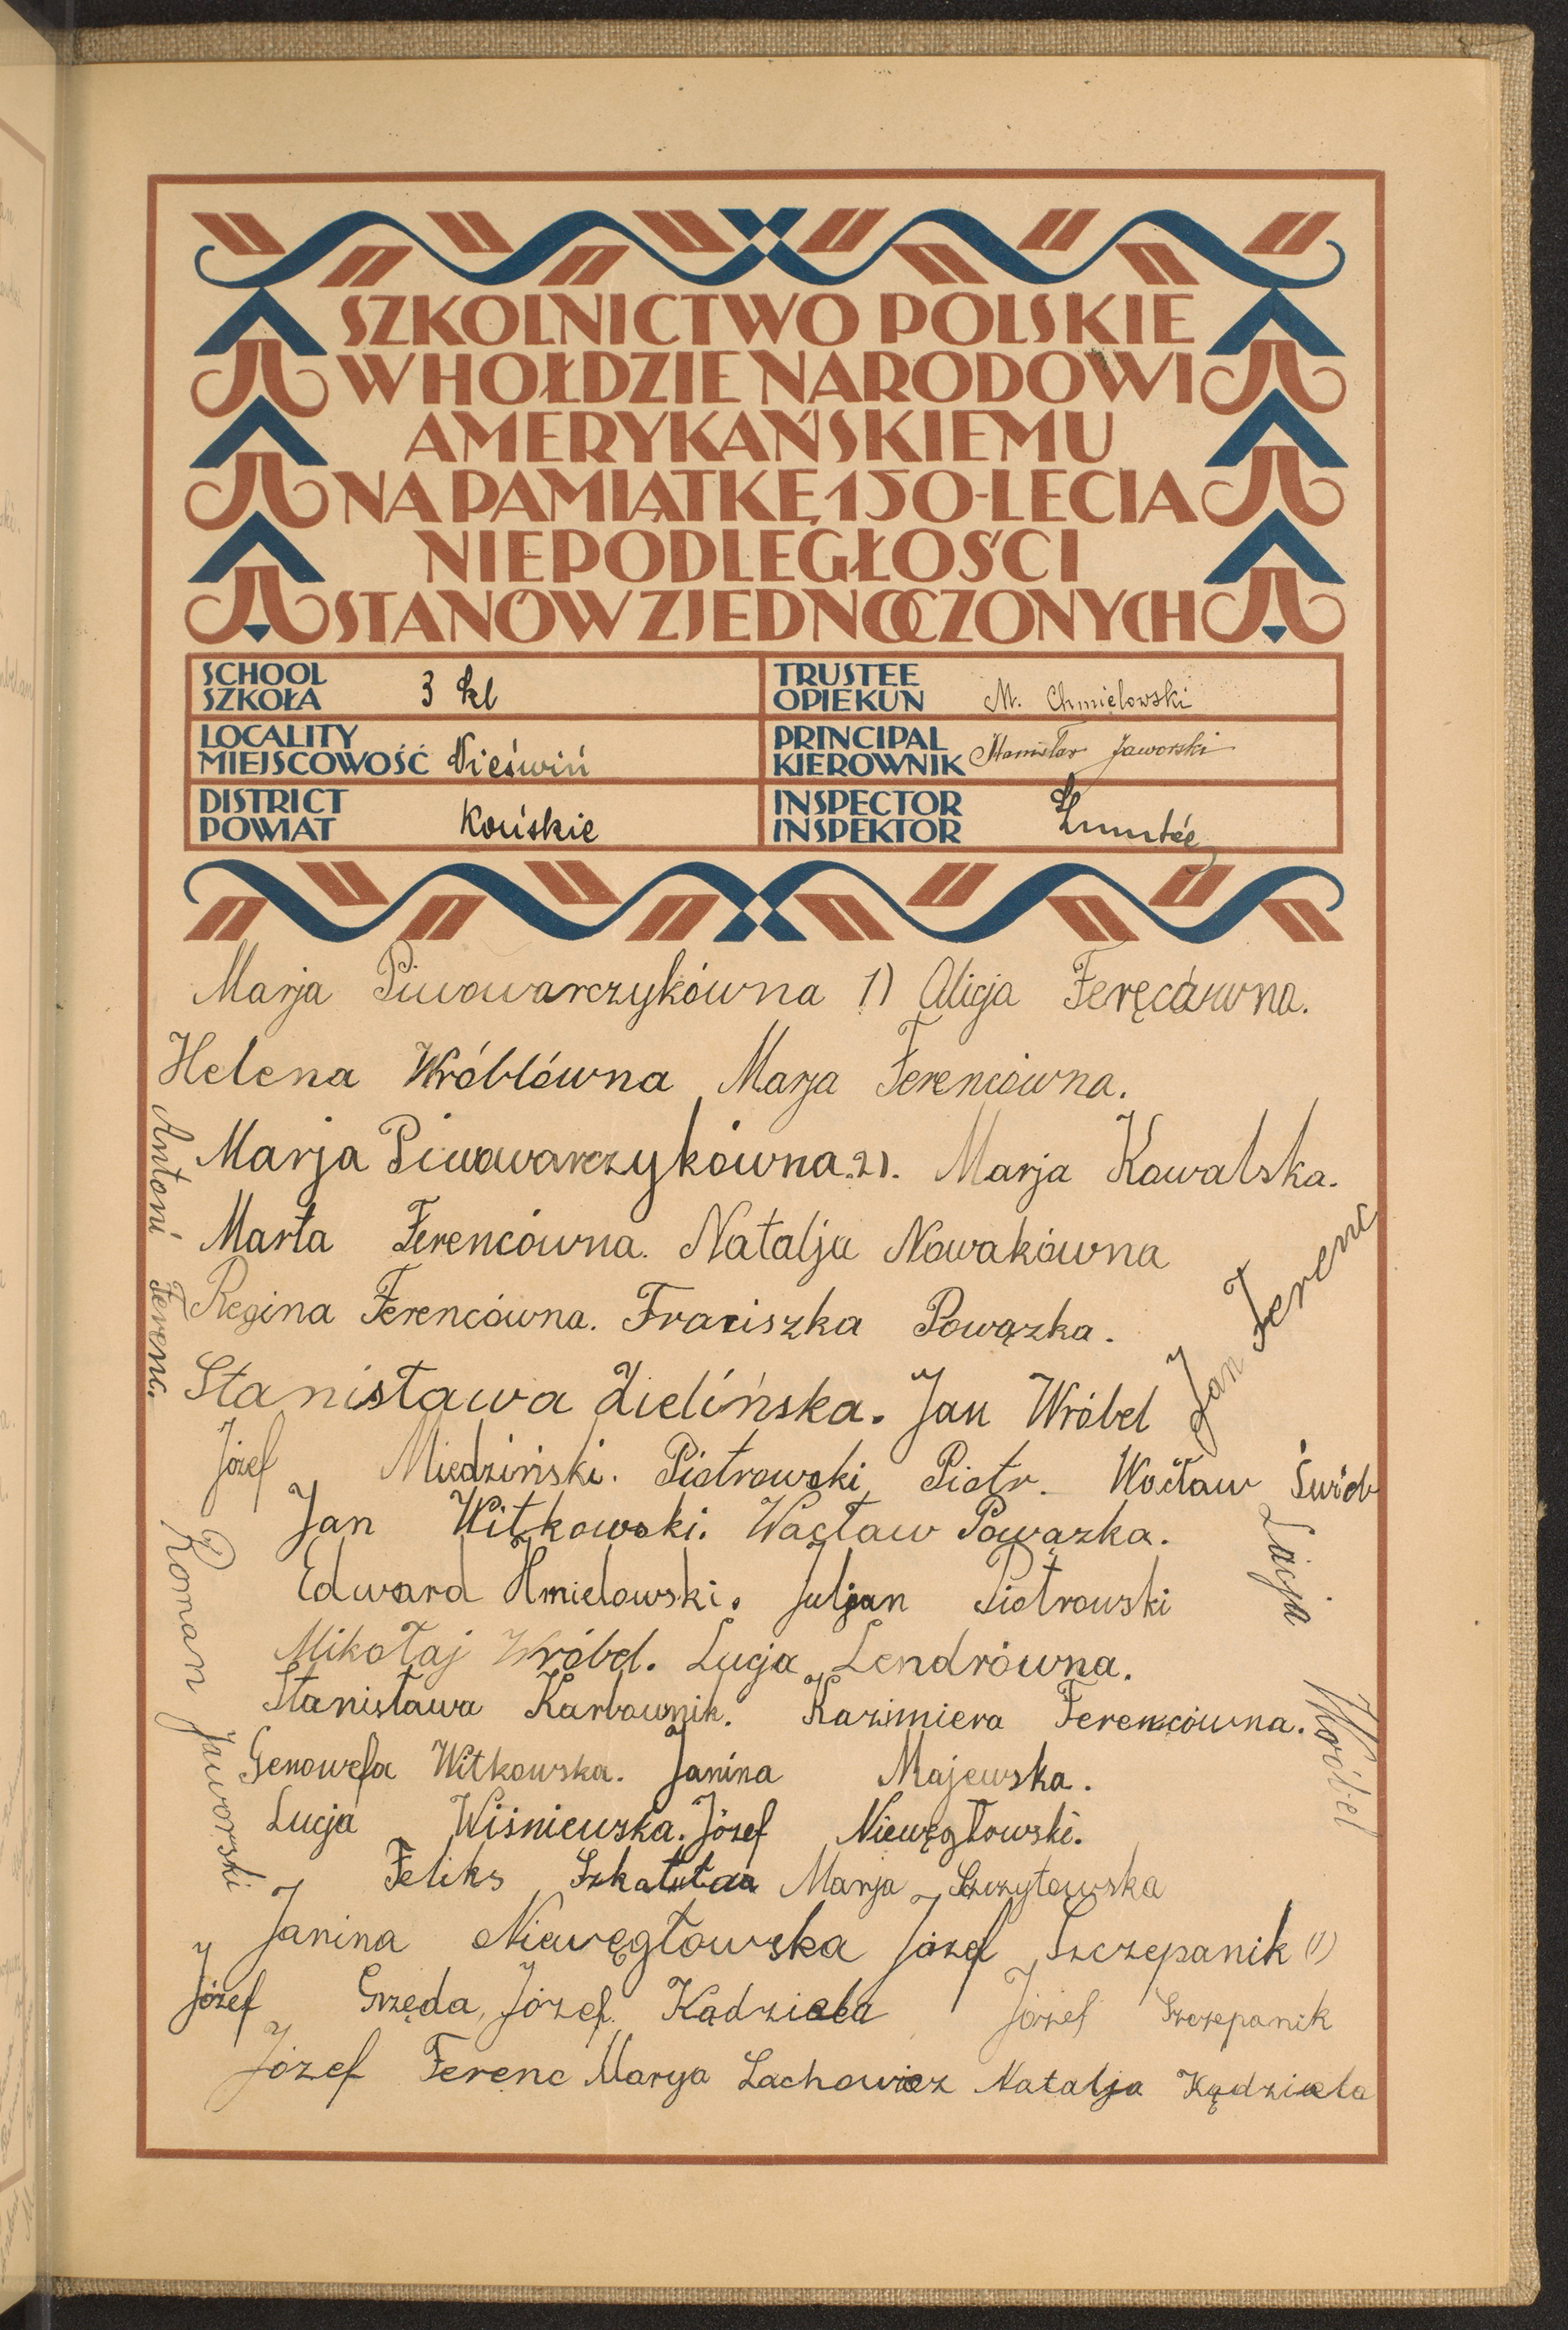 SZKOLNICTWO POLSKIE
W HOŁDZIE NARODOWI
AMERYKAŃSKIEMU
NA PAMIĄTKĘ 150-LECIA
NIEPODLEGŁOŚCI
STANÓW ZJEDNOCZONYCH
SCHOOL
SZKOŁA 3 kl
TRUSTEE
OPIEKUN M. Chmielowski
LOCALITY
MIEJSCOWOŚĆ Nieświń
PRINCIPAL
KIEROWNIK Stanisław Jaworski
DISTRICT
POWIAT Końskie
INSPECTOR
INSPEKTOR
Marja Piwowarczykówna 1) Alicja Feręcówna.
Helena Wróblówna Marja Ferencówna.
Marja Piwowarczykówna 2). Marja Kowalska.
Marta Ferencówna. Natalja Nowakówna
Regina Ferencówna. Franciszka Powązka.
Stanisława Zielińska. Jan Wróbel
Jan Ferenc
Antoni Ferenc.
Józef Miedziński. Piotrowski Piotr. Wacław Świeb
Jan Witkowski. Wacław Powązka.
Edward Hmielowski. Juljan Piotrowski
Mikołaj Wróbel. Lucja Lendrówna.
Stanisława Karbownik. Kazimiera Ferencówna.
Genowefa Witkowska. Janina Majewska.
Lucja Wiśniewska. Józef Niewęgłowski.
Feliks Szkatuła Marja Szczytowska
Janina Niewęgłowska Józef Szczepanik (1)
Józef Grzęda, Józef Kądziela Józef Szczepanik
Józef Ferenc Marya Lachowicz Natalja Kądziela
Roman Jaworski
Łucja Wróbel